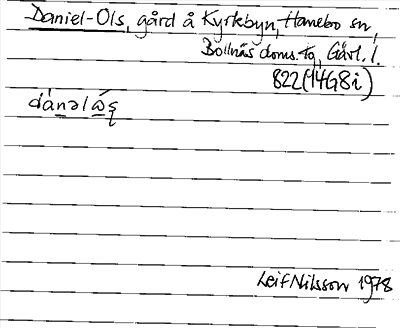 Daniel-Ols, gård å Kyrkbyn, Hanebo sn,
Bollnäs doms. to, Gävl. l.
822 (14G8i)
dánalås̨
Leif Nilsson 1978